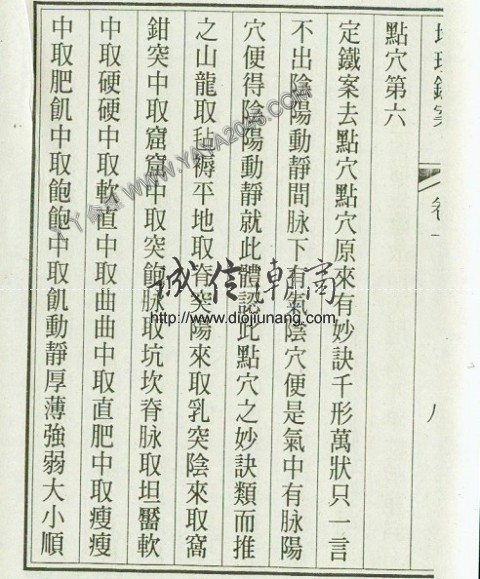 地理鐵案
卷一
八
點穴第六
定鐵案去點穴點穴原來有妙訣千形萬狀只一言
不出陰陽動靜間脉下有氣陰穴便是氣中有脉陽
穴便得陰陽動靜就此體認此點穴之妙訣類而推
之山龍取毡褥平地取脊突陽來取乳突陰來取窩
鉗突中取窟窟中取突飽脉取坑坎脊脉取坦
軟
中取硬硬中取軟直中取曲曲中取直肥中取瘦瘦
中取肥飢中取飽飽中取飢動靜厚薄強弱大小順
誠信
商
http://www.diojiunang.com
WWW.YAYA2020.COM